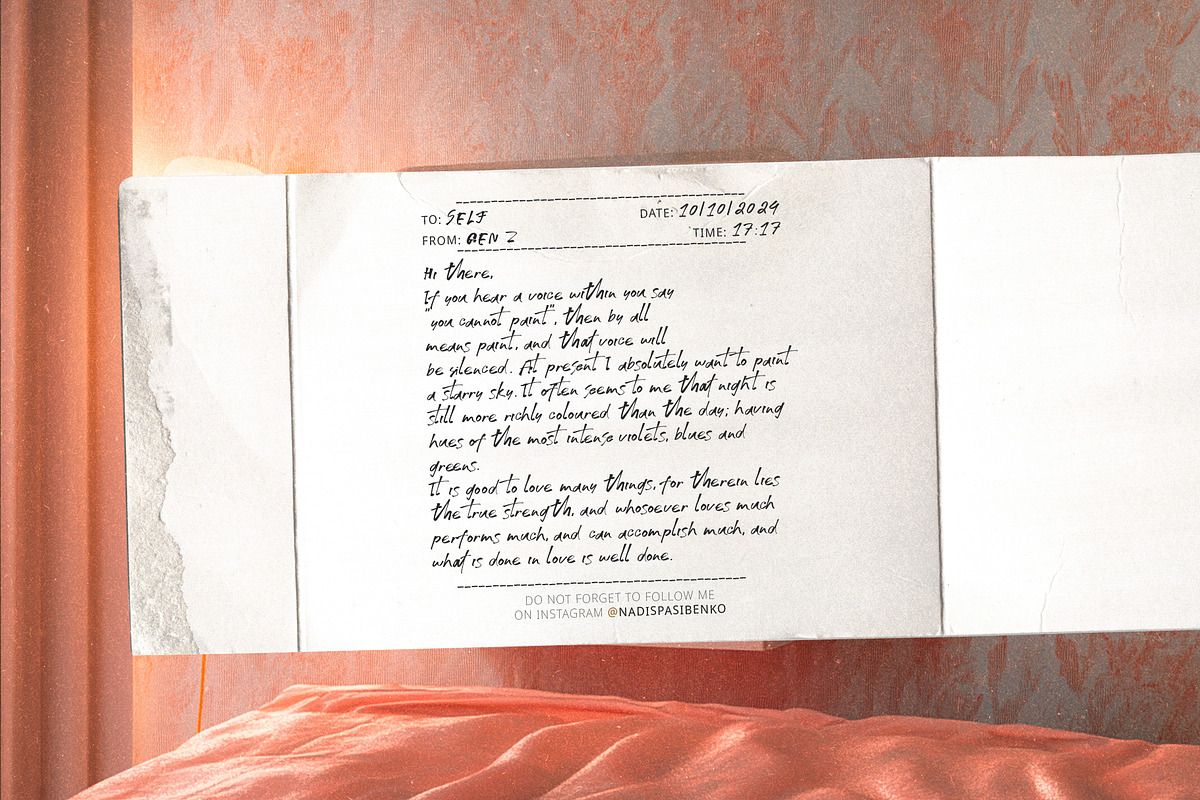 TO: SELF
DATE: 10/10/2024
FROM: GEN Z
TIME: 17:17
Hi there,
If you hear a voice within you say
"you cannot paint", then by all
means paint, and that voice will
be silenced. At present I absolutely want to paint
a starry sky. It often seems to me that night is
still more richly coloured than the day; having
hues of the most intense violets, blues and
greens.
It is good to love many things, for therein lies
the true strength, and whosoever loves much
performs much, and can accomplish much, and
what is done in love is well done.
DO NOT FORGET TO FOLLOW ME
ON INSTAGRAM @NADISPASIBENKO